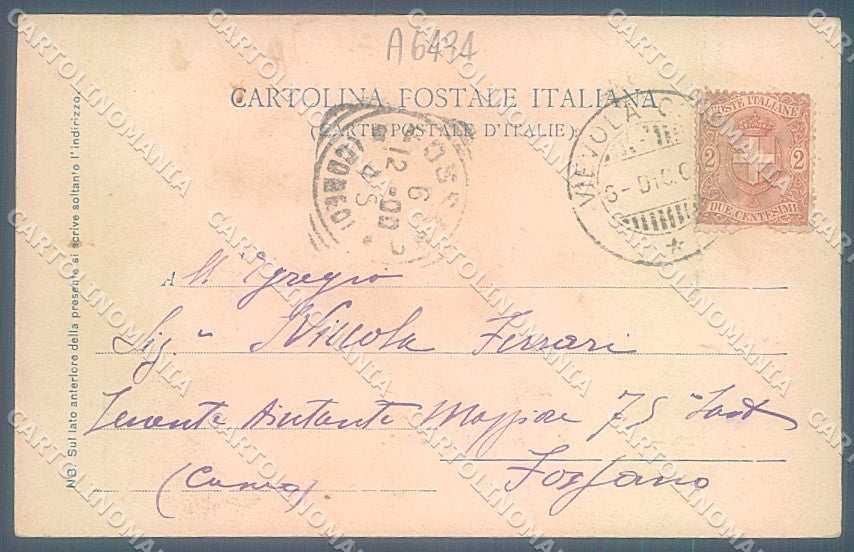 A6434
CARTOLINA POSTALE ITALIANA
(CARTE POSTALE D'ITALIE)
POSTE ITALIANE
2 2
DUE CENTESIMI
VIEVOLA
6- DIC 0
FOSS
6
12-00
A All' Egregio
Sig.r Niccola Ferrari
Tenente Aiutante Maggiore 75°
Fossano
(Cuneo)
NB. Sul lato anteriore della presente si scrive soltanto l'indirizzo.
CARTOLINOMANIA